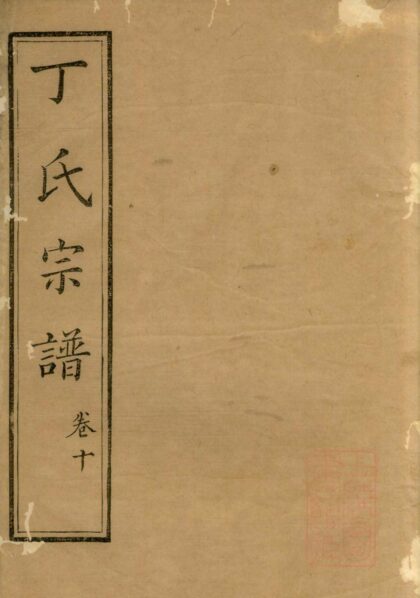 丁氏宗譜
卷十